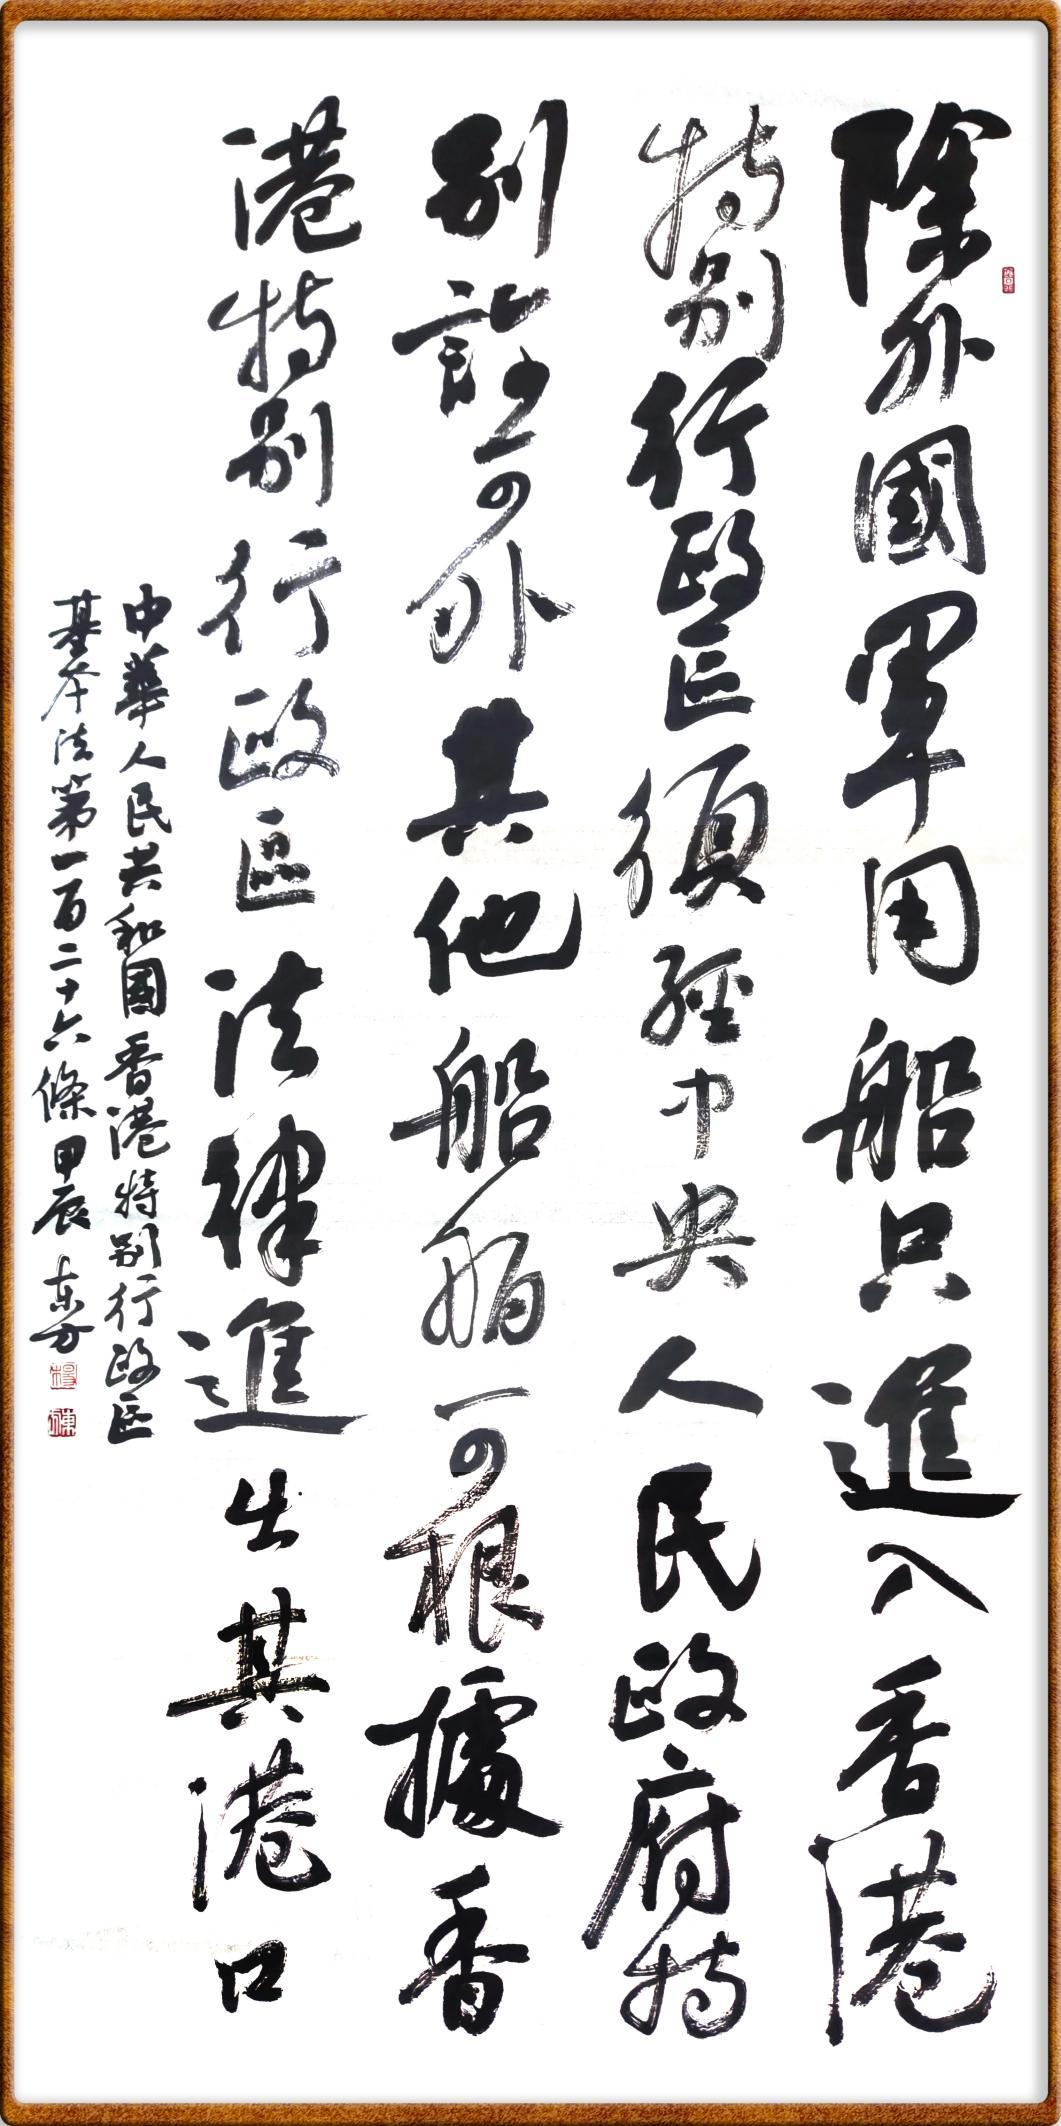 除外國軍用船只進入香港
特别行政区須經中央人民政府特
别許可外其他船舶可根據香
港特别行政區法律進出其港口
中華人民共和國香港特别行政区
基本法第一百二十六條甲辰东方